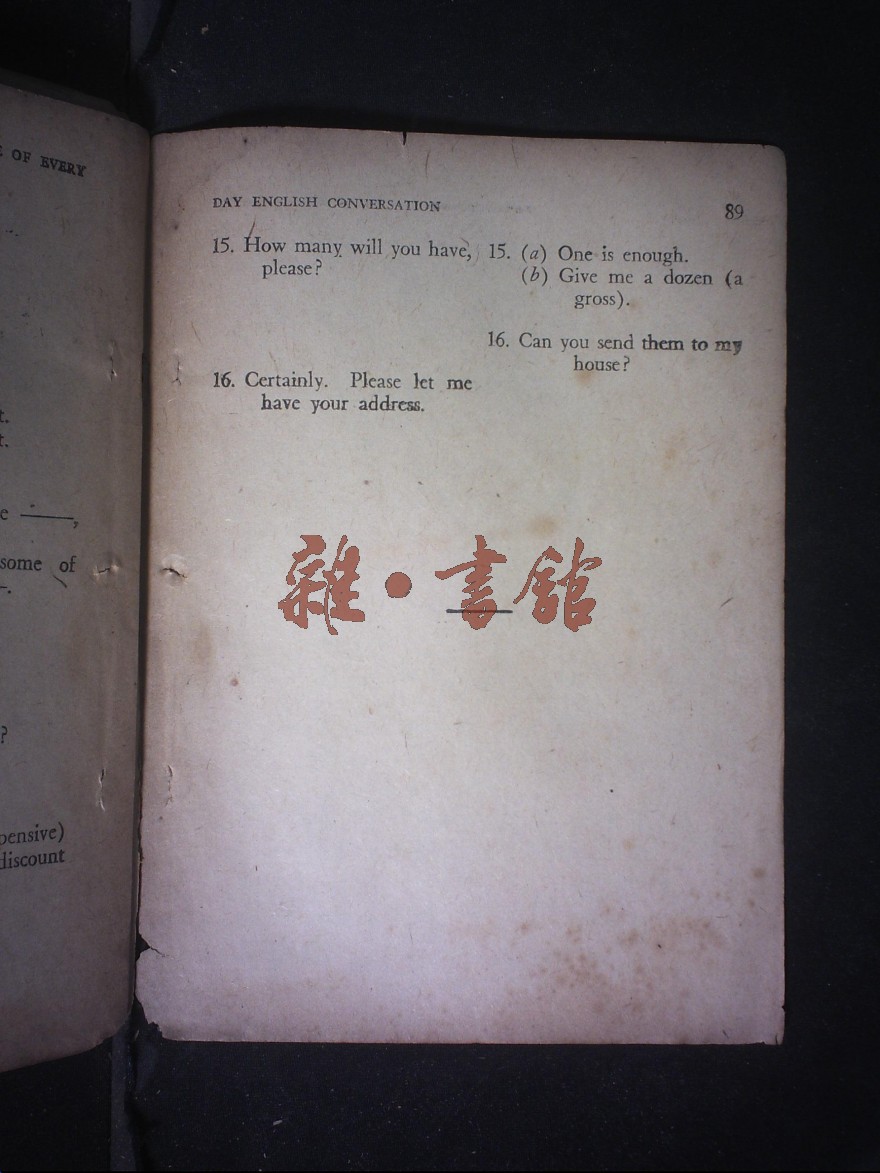 OF EVERY
t.
t.
e ——,
some of
—.
?
pensive)
discount
DAY ENGLISH CONVERSATION 89
15. How many will you have,
please?
16. Certainly. Please let me
have your address.
15. (a) One is enough.
(b) Give me a dozen (a
gross).
16. Can you send them to my
house?
雜•書館